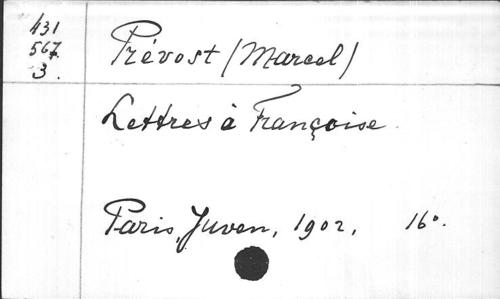 431
567
3.
Prévost (Marcel)
Lettres à Françoise.
Paris, Juven, 1902, 16°.